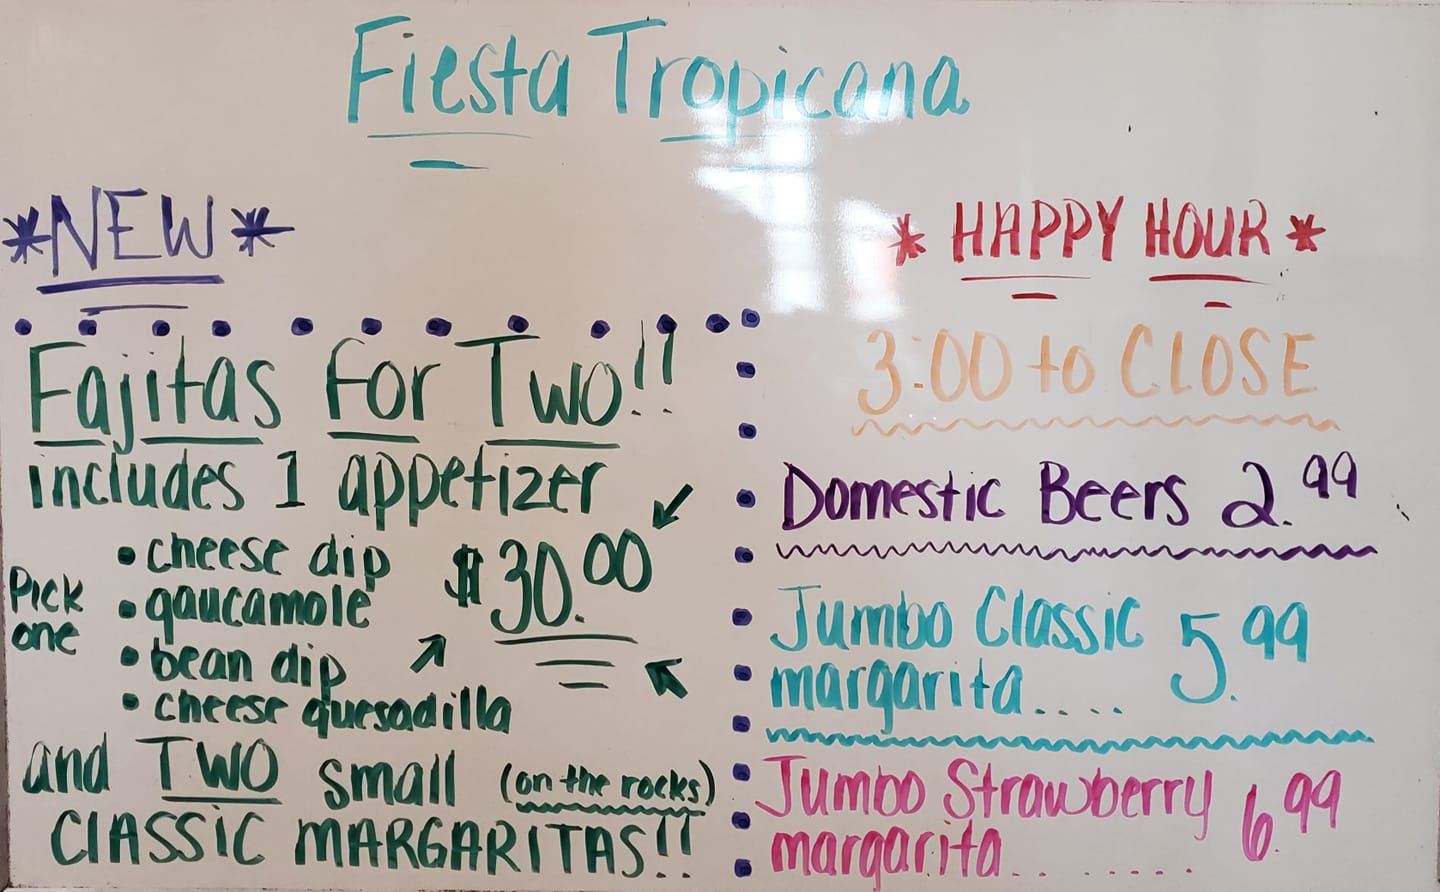 Fiesta Tropicana
*NEW*
Fajitas for Two!!
includes 1 appetizer
Pick one
• cheese dip
• gaucamole
• bean dip
• cheese quesadilla
$30.00
and TWO small (on the rocks)
CLASSIC MARGARITAS!!
* HAPPY HOUR *
3:00 to CLOSE
Domestic Beers 2.99
Jumbo Classic
margarita..... 5.99
Jumbo Strawberry
margarita........ 6.99